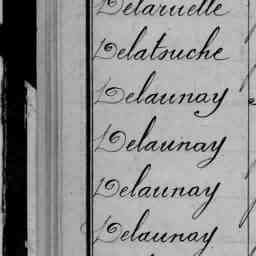 Delaruelle
Delatouche
Delaunay
Delaunay
Delaunay
Delaunay